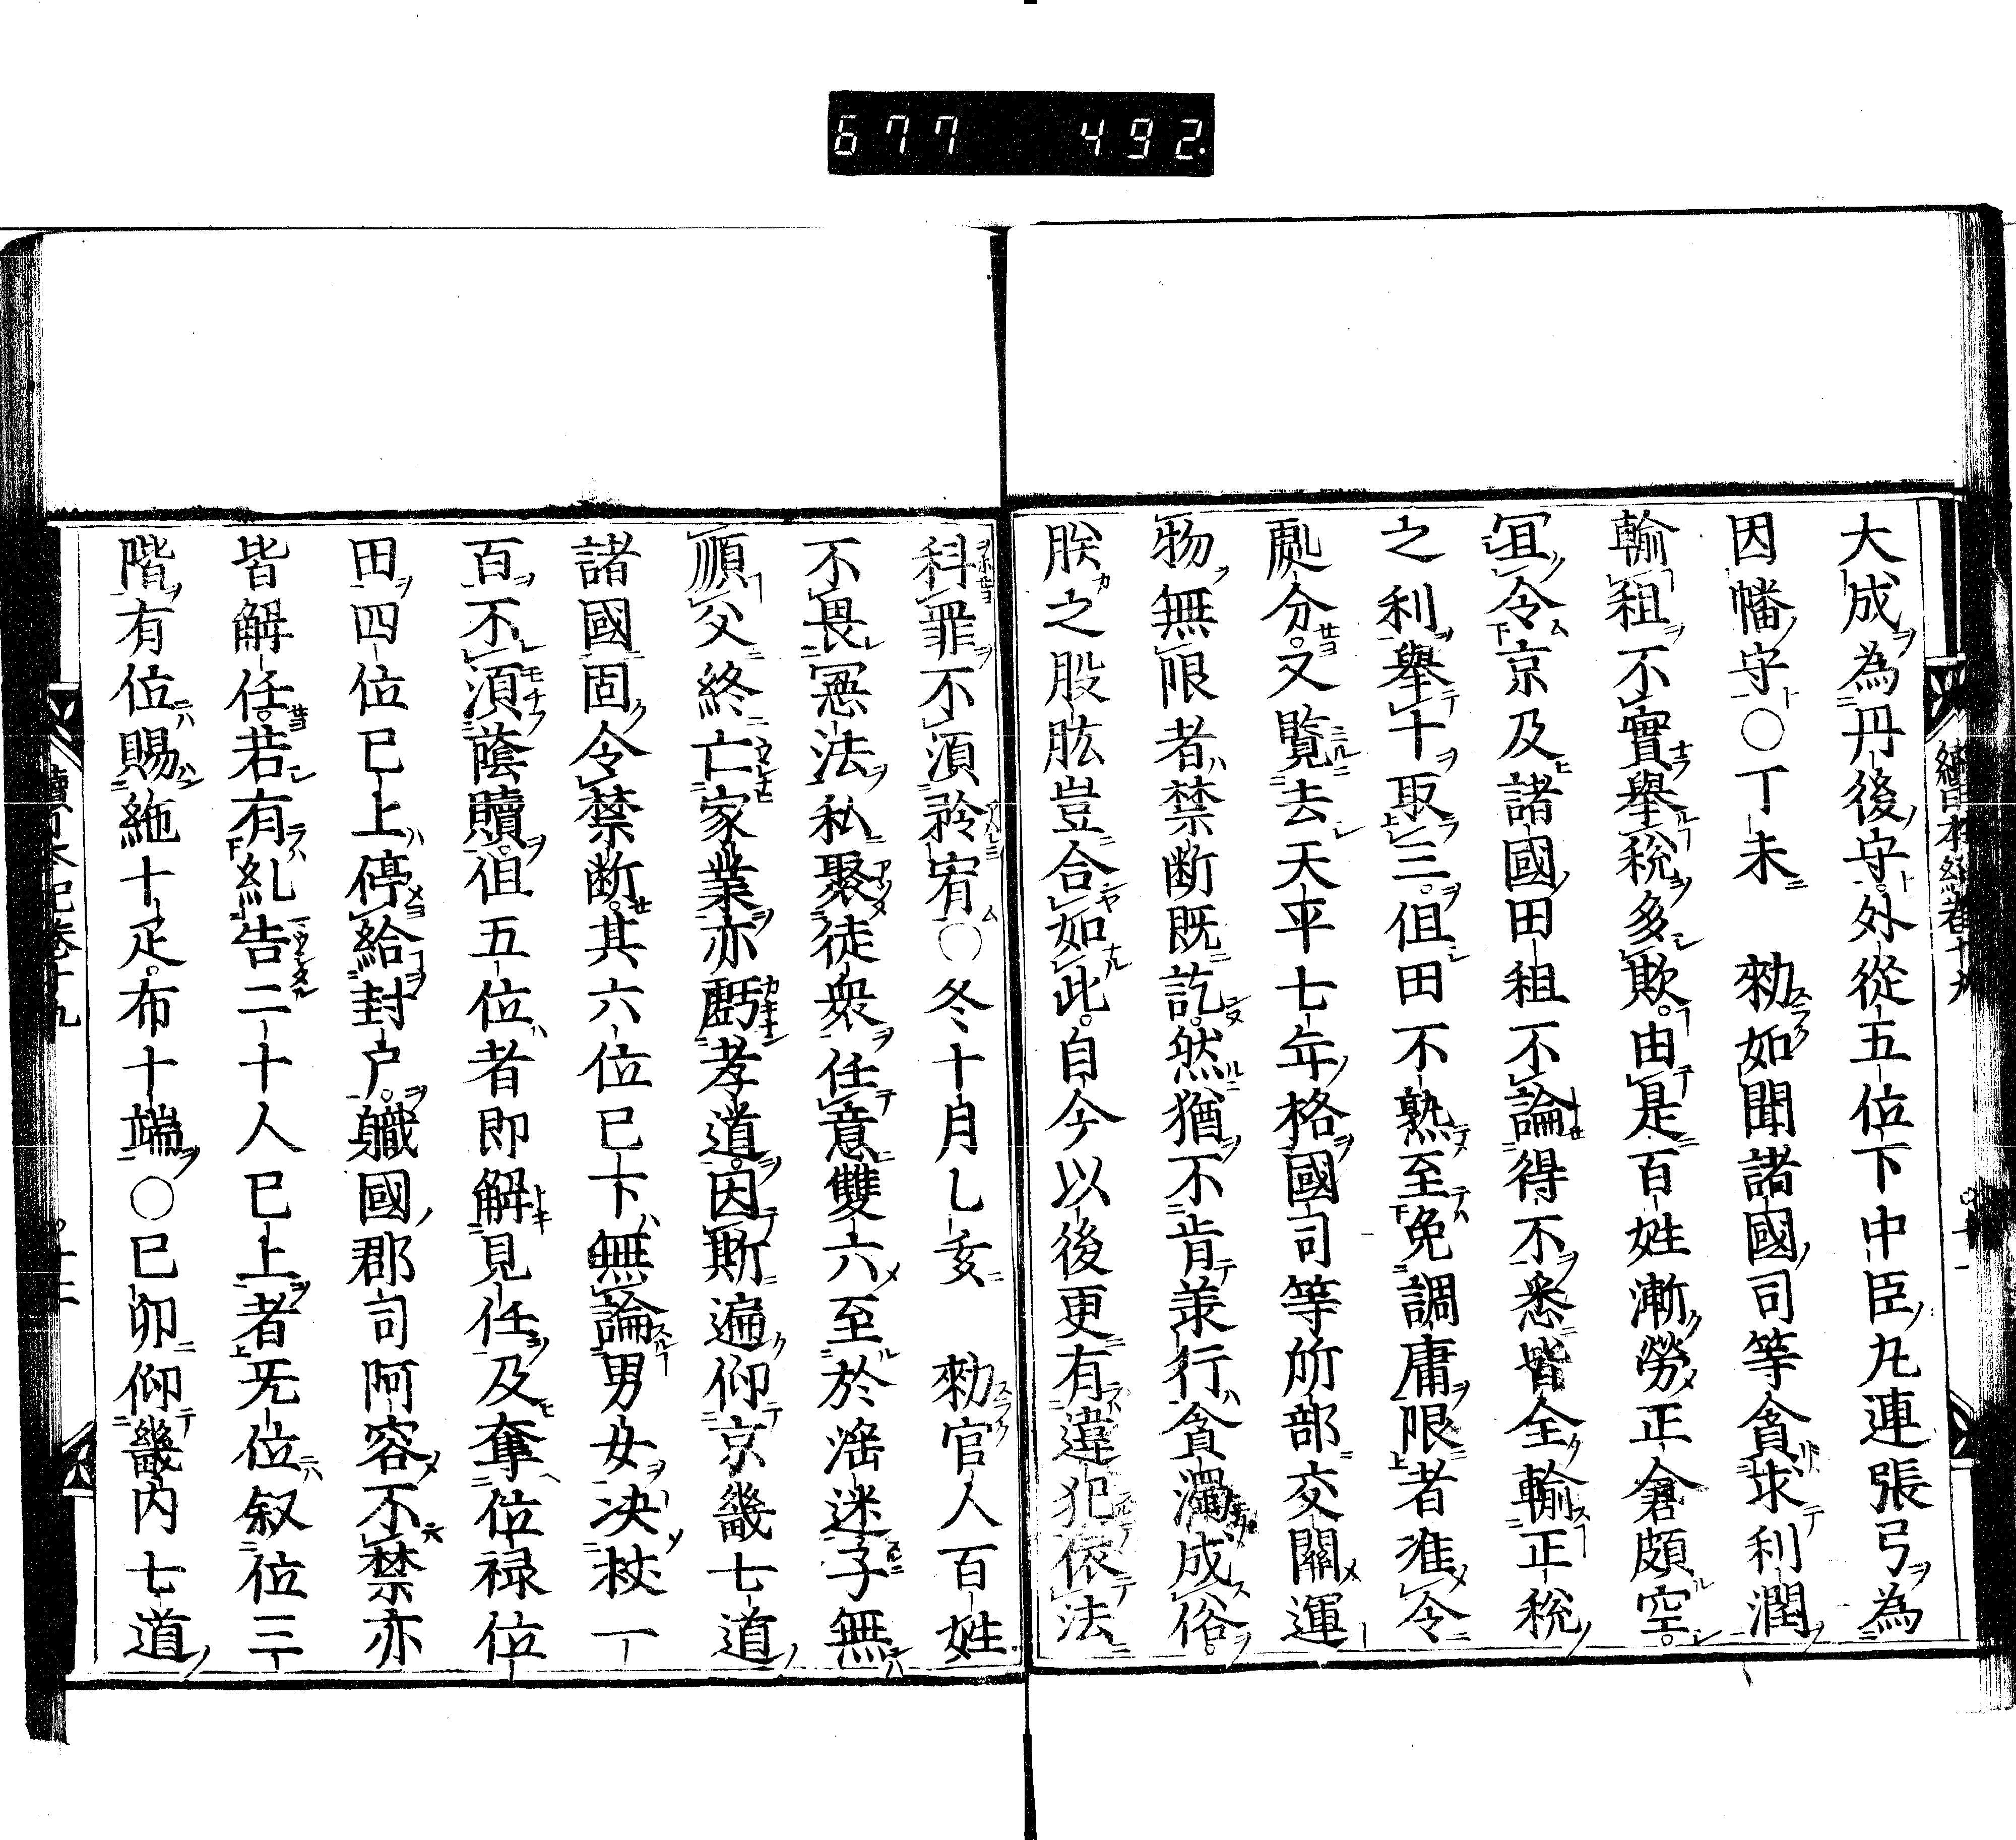 677 492.
大成為丹後守。外從五位下中臣丸連張弓為
因幡守○丁未 勑如聞諸國司等貪求利潤
輸租不實舉税多欺。由是百姓漸勞正倉頗空。
冝令京及諸國田租不論得不悉皆全輸正税
之利舉十取三。但田不熟至免調庸限者准令
處分。又覽去天平七年格國司等所部交關運
物無限者禁断既訖。然猶不肯羕行貪濁成俗。
朕之股肱豈合如此。自今以後更有違犯依法
科罪不湏矜宥○冬十月乙亥 勑官人百姓
不畏憲法私聚徒衆任意雙六至於滛迷子無
順父終亡家業亦虧孝道。因斯遍仰京畿七道
諸國固令禁断。其六位已下無論男女决杖一
百不湏蔭贖。但五位者即解見任及奪位禄位
田四位已上停給封户。軄國郡司阿容不禁亦
皆解任。若有糺告二十人已上者旡位叙位三
階有位賜絁十疋。布十端○已卯仰畿内七道